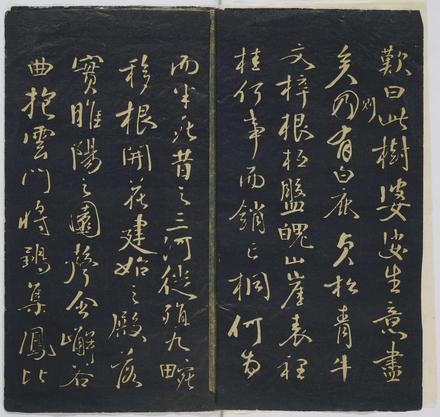 歎曰此樹婆娑生意盡
矣乃有白鹿貞松青牛
文梓根柢盤魄山崖表裏
桂何事而銷亡桐何為
而半死昔之三河徙殖九畹
移根開花建始之殿落
實睢陽之園聲含嶰谷
曲抱雲門將鶵集鳳比